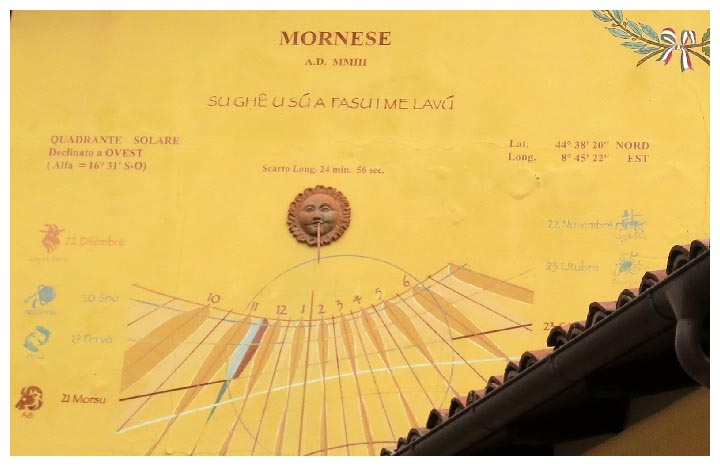 MORNESE
A.D. MMIII
SU GHÊ U SÚ A FASU I ME LAVÚ
QUADRANTE SOLARE
Declinato a OVEST
( Alfa = 16° 31' S-O)
Lat. 44° 38' 20" NORD
Long. 8° 45' 22" EST
Scarto Long. 24 min. 56 sec.
22 Dijembre
22 Nuvembre
23 Utubre
20 Gnò
19 Fervò
21 Morsu
10 11 12 1 2 3 4 5 6